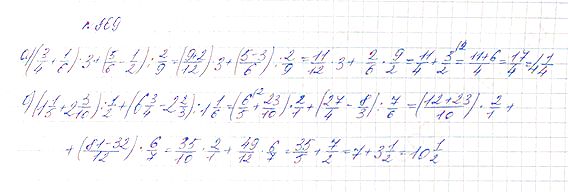 н. 869
а) (3/4 + 1/6) · 3 + (5/6 - 1/2) · 2/9 = (9+2/12) · 3 + (5-3/6) · 2/9 = 11/12 · 3 + 2/6 · 9/2 = 11/4 + 3/2 = 11+6/4 = 17/4 = 4 1/4
б) (1 1/5 + 2 3/10) · 1/2 + (6 3/4 - 2 2/3) · 1 1/6 = (6/5 + 23/10) · 2/1 + (27/4 - 8/3) · 7/6 = (12+23/10) · 2/1 +
+ (81-32/12) · 6/7 = 35/10 · 2/1 + 49/12 · 6/7 = 35/5 + 7/2 = 7 + 3 1/2 = 10 1/2